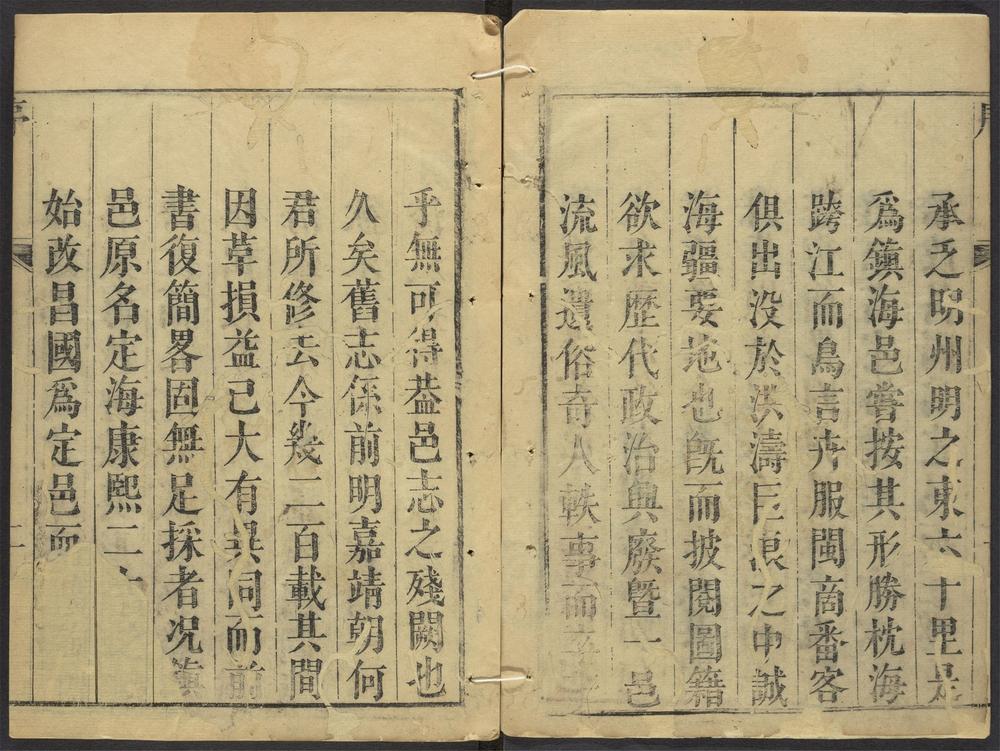 承乏明州明之東六十里是
爲鎭海邑嘗按其形勝枕海
跨江而鳥言卉服閩商番客
俱出没於洪濤巨浪之中誠
海疆要地也旣而披閱圖籍
欲求歷代政治興廢曁一邑
流風遺俗奇人軼事而
乎無可得葢邑志之殘闕也
久矣舊志係前明嘉靖朝何
君所修去今幾二百載其間
因革損益已大有異同而前
書復簡畧固無足採者况鎭
邑原名定海康熙二十
始改昌國爲定邑而
序
二